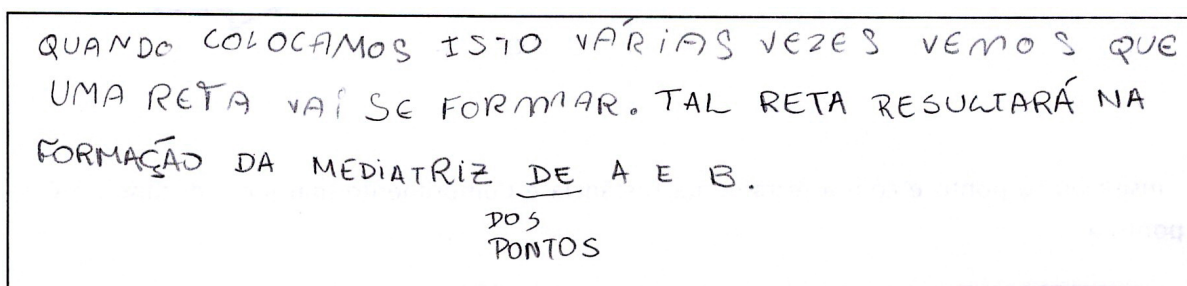 QUANDO COLOCAMOS ISTO VÁRIAS VEZES VEMOS QUE
UMA RETA VAI SE FORMAR. TAL RETA RESULTARÁ NA
FORMAÇÃO DA MEDIATRIZ DE A E B.
DOS
PONTOS